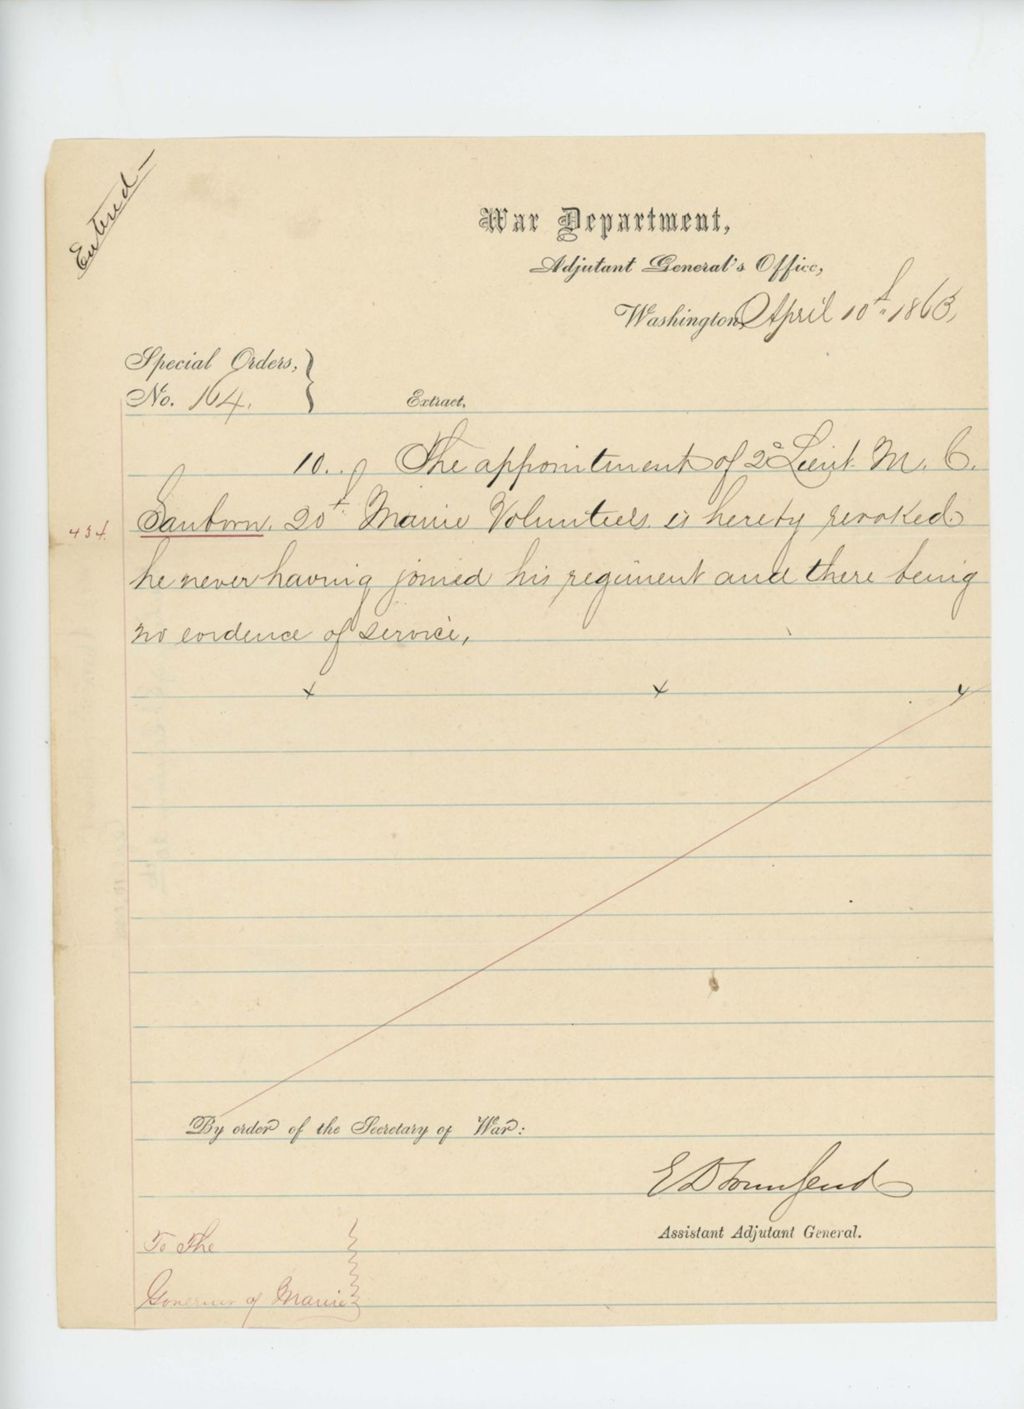 Entered –
War Department,
Adjutant General's Office,
Washington, April 10th 1863,
Special Orders,
No. 164.
Extract.
10. The appointment of 2d Lieut. M. C.
434. Sanborn, 20th Maine Volunteers is hereby revoked
he never having joined his regiment and there being
no evidence of service,
x x x
By order of the Secretary of War:
E D Townsend
Assistant Adjutant General.
To The
Governor of Maine